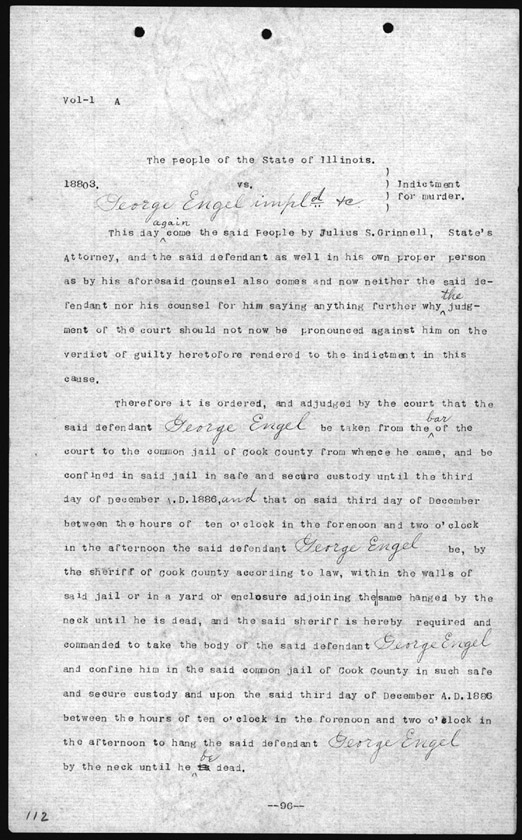 Vol-1 A
The People of the State of Illinois.
18803. vs. ) Indictment
George Engel impl'd &c ) for murder.
again
This day come the said People by Julius S. Grinnell, State's
Attorney, and the said defendant as well in his own proper person
as by his aforesaid counsel also comes and now neither the said de-
fendant nor his counsel for him saying anything further why the judg-
ment of the court should not now be pronounced against him on the
verdict of guilty heretofore rendered to the indictment in this
cause.
Therefore it is ordered, and adjudged by the court that the
said defendant George Engel be taken from the bar of the
court to the common jail of Cook County from whence he came, and be
confined in said jail in safe and secure custody until the third
day of December A.D.1886, and that on said third day of December
between the hours of ten o'clock in the forenoon and two o'clock
in the afternoon the said defendant George Engel be, by
the sheriff of Cook County according to law, within the walls of
said jail or in a yard or enclosure adjoining the same hanged by the
neck until he is dead, and the said sheriff is hereby required and
commanded to take the body of the said defendant George Engel
and confine him in the said common jail of Cook County in such safe
and secure custody and upon the said third day of December A.D.1886
between the hours of ten o'clock in the forenoon and two o'clock in
the afternoon to hang the said defendant George Engel
by the neck until he be dead.
--96--
112